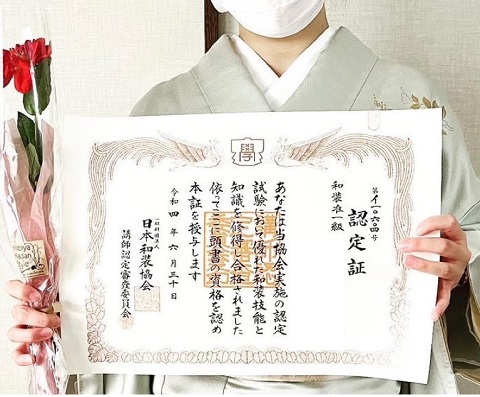 第イ一〇六〇四号
認定証
和装准一級
あなたは当協会実施の認定
試験において優れた和装技能と
知識を修得し合格されました
依ってここに頭書の資格を認め
本証を授与します
令和四年六月三十日
一般財団法人
日本和装協会
講師認定審査委員会
學